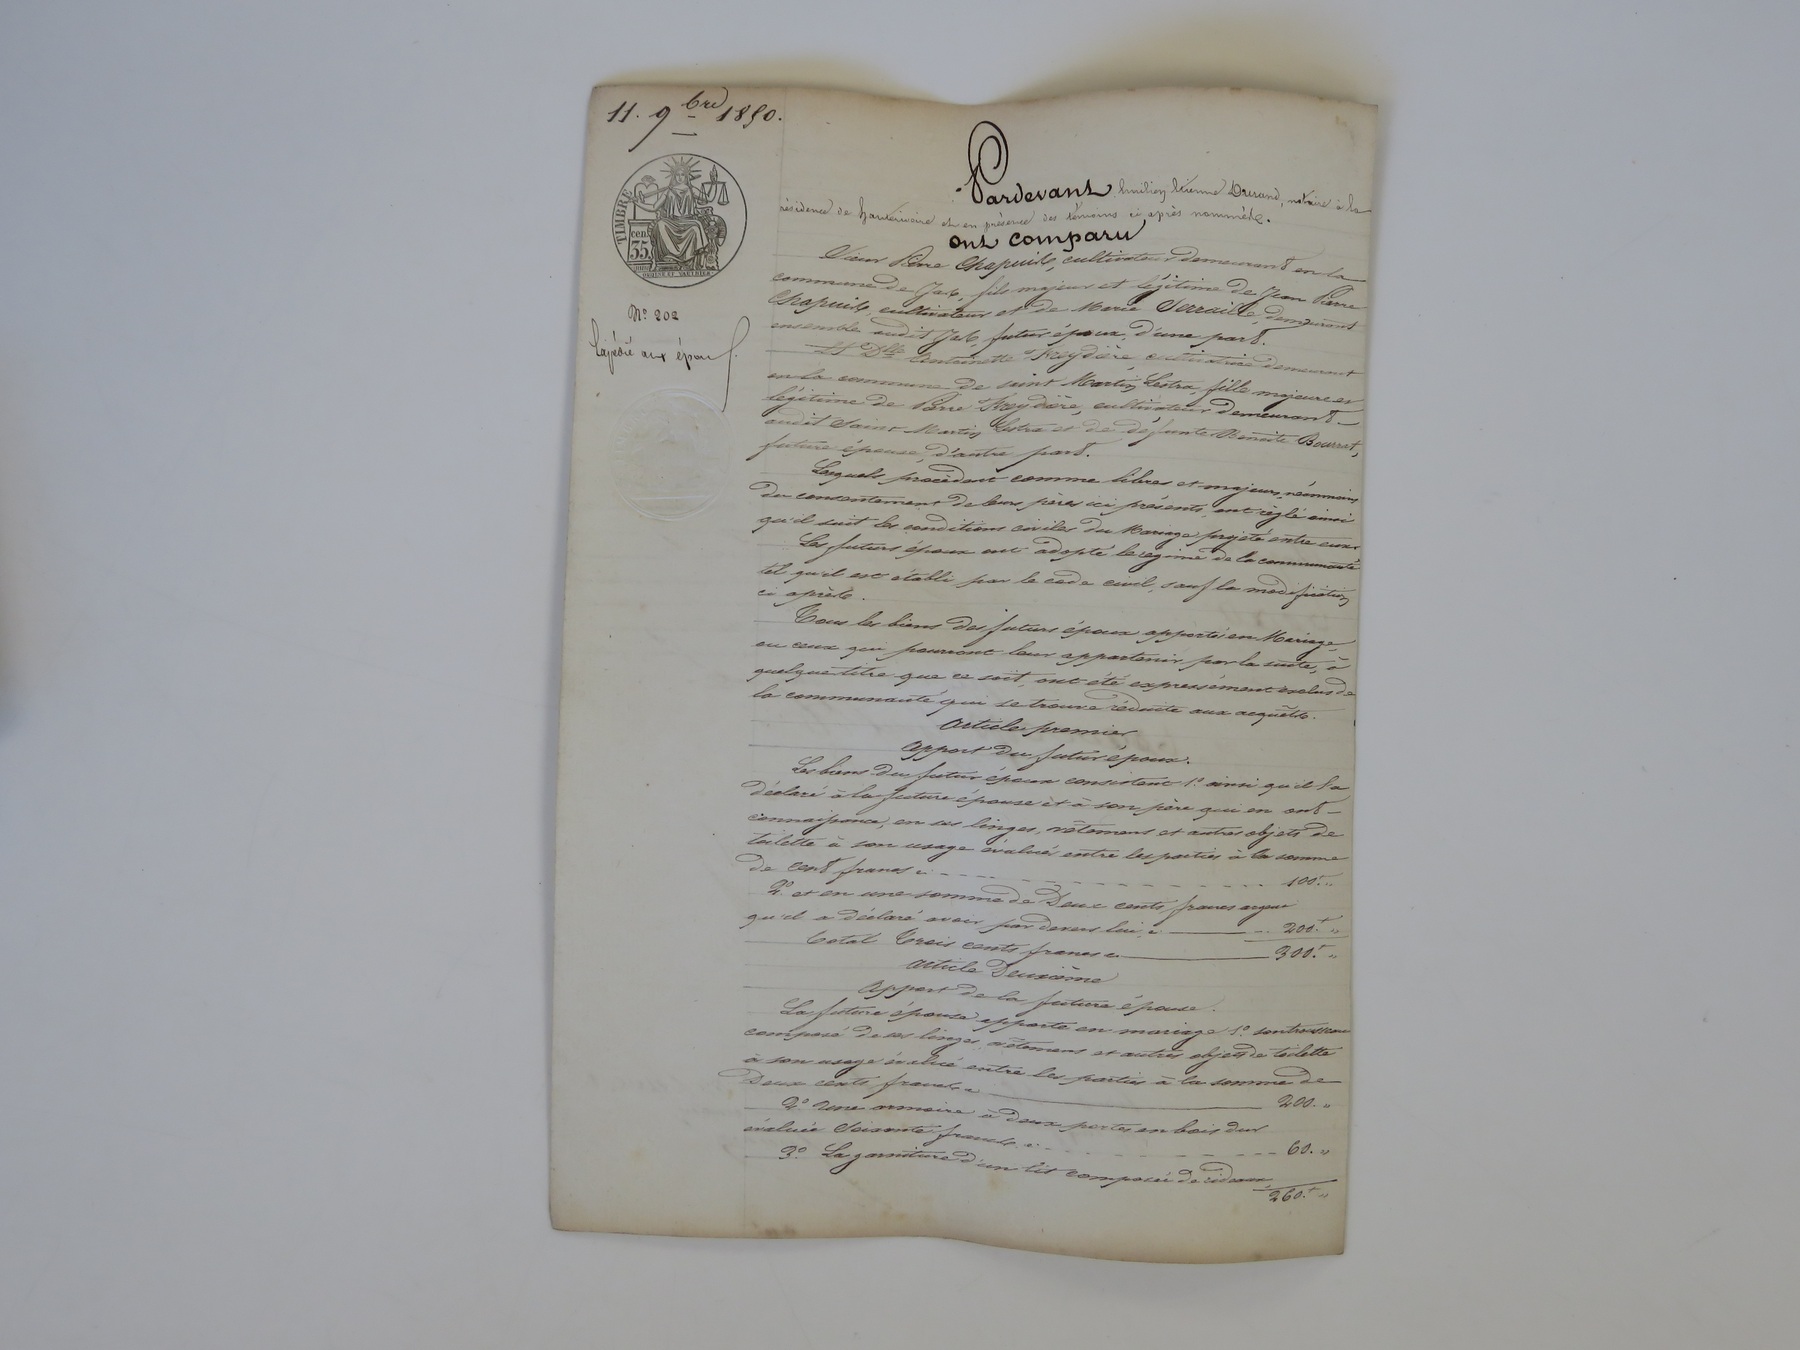 11. 9bre 1850.
TIMBRE
cen.
35.
No 202
Expédié aux époux.
Pardevant Emilien Etienne Durand, notaire à la
résidence de hauterivoire et en présence des témoins ci après nommés.
ont comparu
Sieur Pierre Chapuis, cultivateur demeurant en la
commune de Jas, fils majeur et légitime de Jean Pierre
Chapuis, cultivateur et de Marie Serraille, demeurant
ensemble audit Jas, futur époux, d'une part.
Et Dlle Antoinette Freydière, cultivatrice demeurant
en la commune de saint Martin Lestra, fille majeure et
légitime de Pierre Freydière, cultivateur demeurant
audit Saint Martin Lestra et de défunte Benoite Bourrat,
future épouse, d'autre part.
Lesquels procédant comme libres et majeurs, néanmoins
du consentement de leurs pères ici présents, ont réglé ainsi
qu'il suit les conditions civiles du Mariage projeté entre eux.
Les futurs époux ont adopté le régime de la communauté
tel qu'il est établi par le code civil, sauf la modification
ci après.
Tous les biens des futurs époux apportés en Mariage
ou ceux qui pourront leur appartenir par la suite, à
quelque titre que ce soit, ont été expressément exclus de
la communauté qui se trouve réduite aux acquêts.
Article premier
Apport du futur époux.
Les biens du futur époux consistent 1o ainsi qu'il l'a
déclaré à la future épouse et à son père qui en ont
connaissance, en ses linges, vêtemens et autres objets de
toilette à son usage évalués entre les parties à la somme
de cent francs ci 100f "
2o et en une somme de Deux cents francs argent
qu'il a déclaré avoir par devers lui, ci 200f "
Total Trois cents francs ci 300f "
Article Deuxième
Apport de la future épouse.
La future épouse apporte en mariage 1o son trousseau
composé de ses linges, vêtemens et autres objets de toilette
à son usage évalué entre les parties à la somme de
Deux cents francs ci 200. "
2o Une armoire à deux portes en bois dur
évaluée Soixante francs ci 60. "
3o La garniture d'un lit composée de rideaux,
260f "